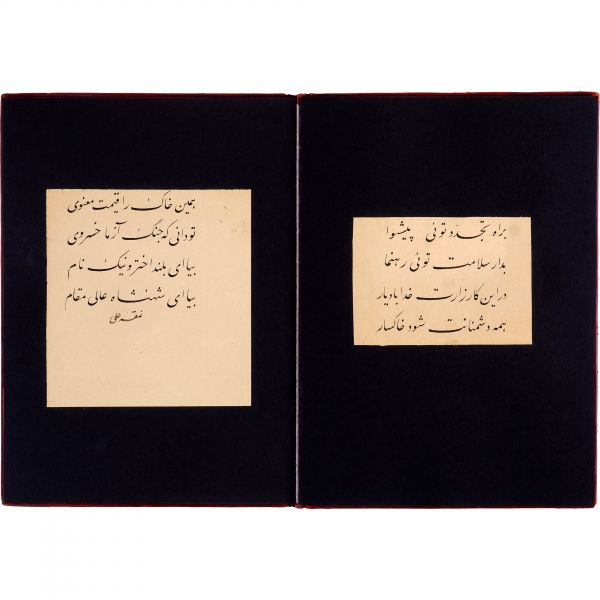 براه تجدّد توئی پیشوا
بدار سلامت توئی رهنما
در این کارزارت خدا باد یار
همه دشمنانت شود خاکسار
همین خاک را قیمت معنوی
تو دانی که جنگ آزما خسروی
بیا ای بلند اختر و نیک نام
بیا ای شهنشاه عالی مقام
نمقه علی